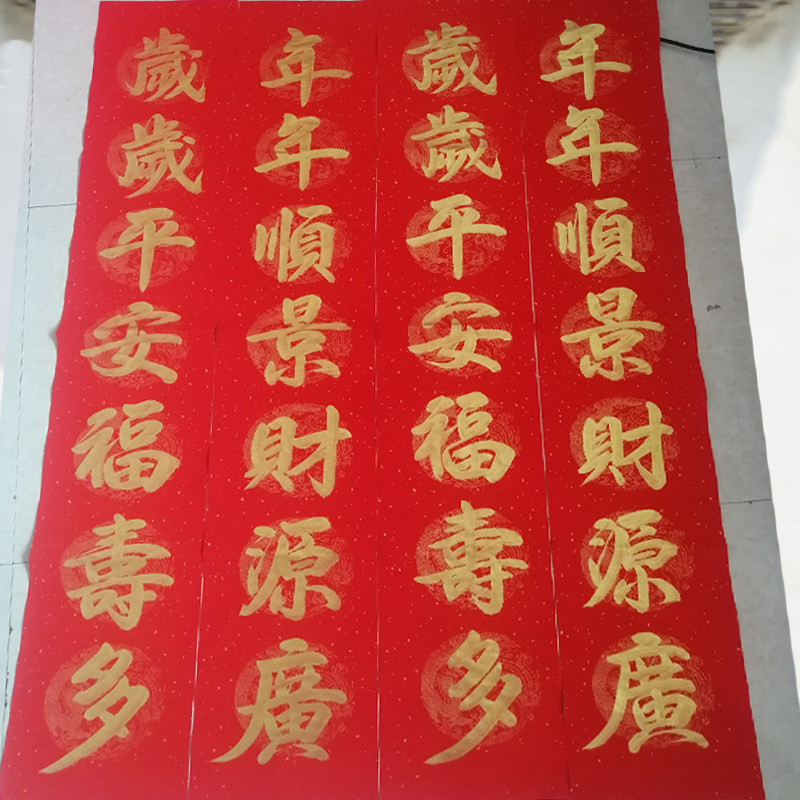 年年順景財源廣
歲歲平安福壽多
年年順景財源廣
歲歲平安福壽多